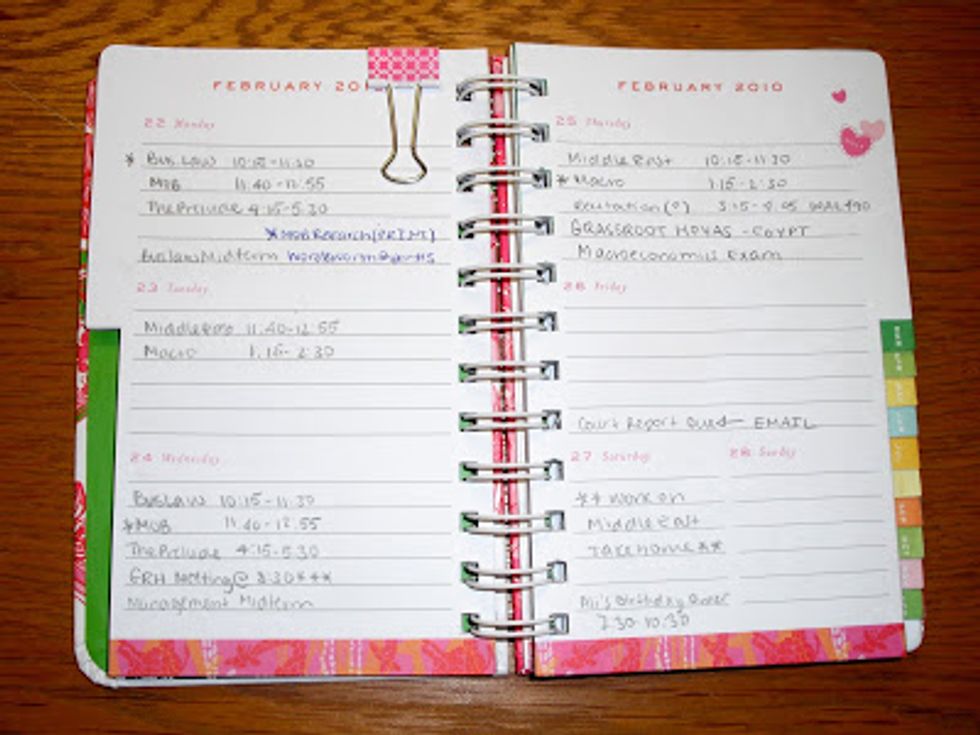 FEBRUARY 20
22 Monday
* BUS. LAW 10:15-11:30
MOB 11:40-12:55
The Prelude 4:15-5:30
*MOB Research (PRINT)
BusLaw Midterm
23 Tuesday
Middle East 11:40-12:55
Macro 1:15-2:30
24 Wednesday
BUSLAW 10:15-11:30
*MOB 11:40-12:55
The Prelude 4:15-5:30
GRH Meeting@ 8:30***
Management Midterm
FEBRUARY 2010
25 Thursday
Middle East 10:15-11:30
*Macro 1:15-2:30
Recitation(?)
GRASSROOT HOYAS - EGYPT
Macroeconomics Exam
26 Friday
Court Report Due - EMAIL
27 Saturday 28 Sunday
** Work on
Middle East
TAKEHOME **
Birthday
7:30-10:30